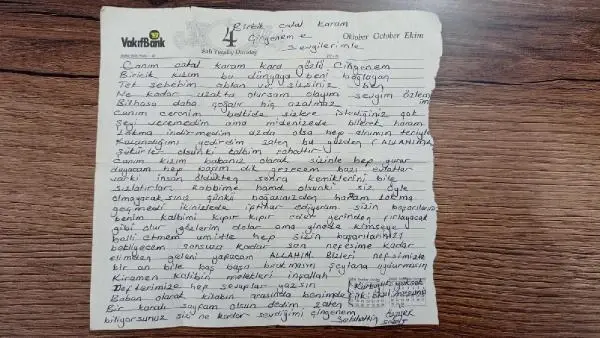 Biricik çatal karam
Çingeneme
Sevgilerimle
VakıfBank
4
Oktober October Ekim
Salı Tuesday Dienstag
Canım çatal karam kara gözlü Çingenem
Biricik kızım bu dünyaya beni bağlayan
Tek sebebim ablan ve sizsiniz ben
Ne kadar uzakta olursam olayım sevgim özlem
im
Bilhassa daha çoğalır hiç azalmaz
Canım ceronim belkide sizlere istediğiniz çok
Şeyi veremedim ama midenizede bilerek haram
Lokma indirmedim azda olsa hep alnımın teriyle
Kazandığımı yedirdim zaten bu yüzden (ALLAHIMA
Şükürler olsunki kalbim rahattır
Canım kızım babanız olarak sizinle hep gurur
duyacam hep başım dik gezecem bazı evlatlar
varki insan öldükten sonra kemiklerini bile
sızlatırlar. Rabbime hamd olsunki siz öyle
olmayacaksınız çünkü boğazınızdan haram lokma
geçmedi ikinizlede iftihar ediyorum sizin başarılarınız
benim kalbimi kıpır kıpır eder yerinden fırlayacak
gibi olur gözlerim dolar ama ginede kimseye
belli etmem umutle hep sizin başarılarınızı
bekliyecem sonsuza kadar son nefesime kadar
elimden geleni yapacam ALLAHIM Bizleri nefsimizle
bir an bile baş başa bırakmasın şeytana uydurmasın
Kiramen katibin melekleri inşallah
Defterimize hep sevaplar yazsın
Baban olarak kitabın arasında benimde
Bir karalı sayfam olsun dedim zaten
biliyorsunuz sizi ne kadar sevdiğimi çingenem
Selahattin